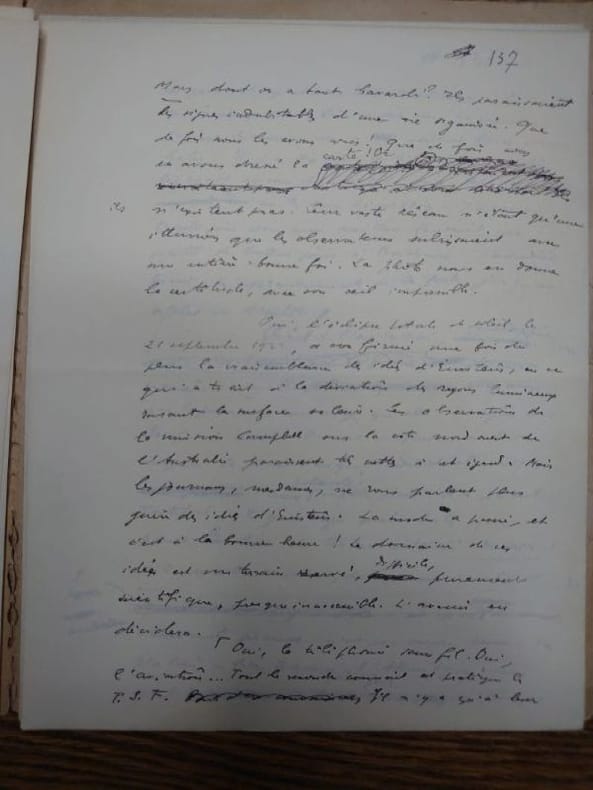 137
Mais dont on a tant bavardé? Ils paraissaient
les signes indubitables d'une vie organisée. Que
de fois nous les avons vus! Que de fois nous
en avons dressé la carte! Or
ils
n'existent pas. Leur vaste réseau n'étant qu'une
illusion que les observateurs subissaient avec
une entière bonne foi. La photo nous en donne
la certitude, avec son œil impassible.
Oui, l'éclipse totale de soleil, le
21 septembre a confirmé une fois de
plus la vraisemblance des idées d'Einstein, en ce
qui a trait à la déviation des rayons lumineux
rasant la surface solaire. Les observations de
la mission Campbell sur la côte nord ouest de
l'Australie paraissent très nettes à cet égard. Mais
les journaux, mesdames, ne vous parlent plus
guère des idées d'Einstein. La mode a passé, et
c'est à la bonne heure! Le domaine de ces
idées est un terrain réservé, difficile, purement
scientifique, presque inaccessible. L'avenir en
décidera.
Oui, la téléphonie sans fil. Oui,
l'aviation... Tout le monde connait et pratique la
T. S. F. Il n'y a qu'à